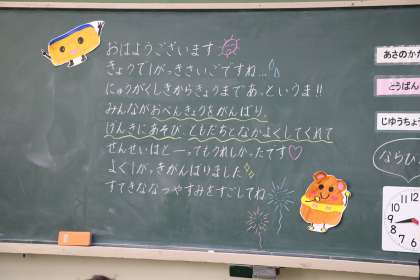 おはようございます
きょうで1がっきさいごですね…
にゅうがくしきからきょうまであっというま!!
みんながおべんきょうをがんばり、
げんきにあそび、ともだちとなかよくしてくれて
せんせいはとーってもうれしかったです♡
よく1がっきがんばりました
すてきななつやすみをすごしてね
あさのかた
とうばん
じゆうちょう
ならひ